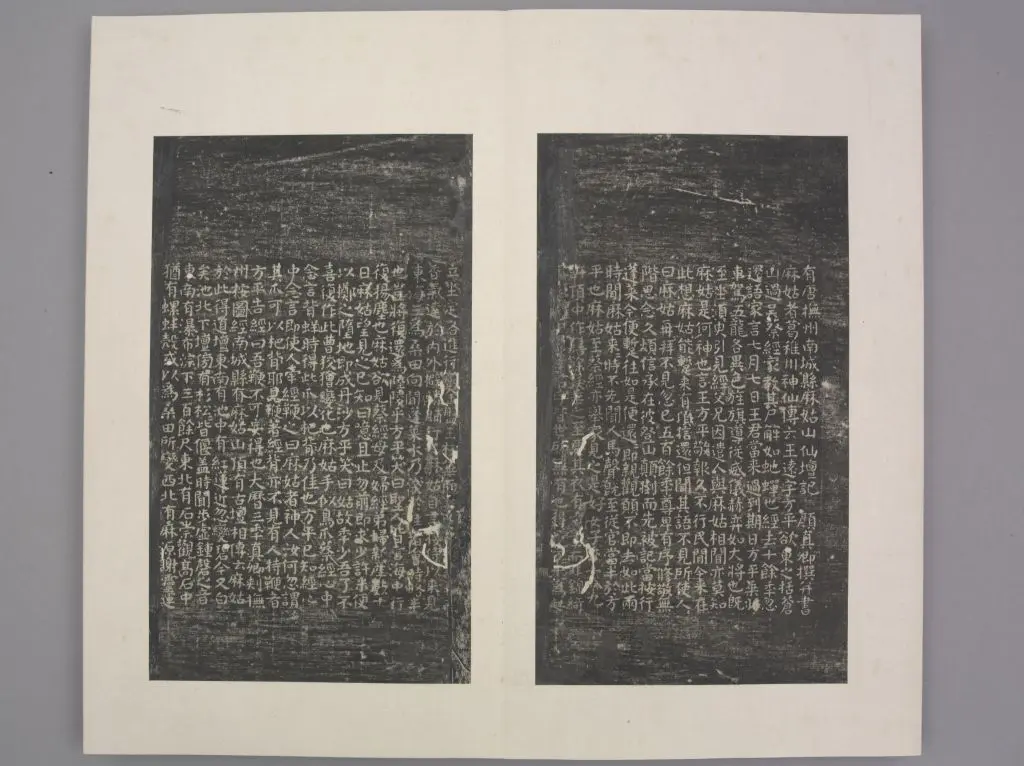 有唐撫州南城縣麻姑山仙壇記 顏真卿撰并書
麻姑者葛稚川神仙傳云王遠字方平欲東之括蒼
山過吳蔡經家教其尸解如蛇蟬也經去十餘年忽
還語家言七月七日王君當來過到期日方平乘羽
車駕五龍各異色旌旗導從威儀赫弈如大將也既
至坐須臾引見經父兄因遣人與麻姑相聞亦莫知
麻姑是何神也言王方平敬報久不行民間今來在
此想麻姑能暫來有頃信還但聞其語不見所使人
曰麻姑再拜不見忽已五百餘年尊卑有序修敬無
階思念久煩信承在彼登山顛倒而先被記當按行
蓬萊今便暫往如是便還還即親觀願不即去如此兩
時間麻姑來來時不先聞人馬聲既至從官當半於方
平也麻姑至蔡經亦舉家見之是好女子
頂中作至其衣有
立坐定各進行
香氣達於內外
東海三為桑田向間蓬萊水乃淺於半
也豈將復還為陸陵乎方平笑曰聖人皆言海中行
復揚塵也麻姑欲見蔡經母及婦經弟婦新產數十
日麻姑望見之已知曰噫且止勿前即求少許米便
以擲之墮地即成丹沙方平笑曰姑故年少吾了不
喜復作此曹狡獪變化也麻姑手似鳥爪蔡經心中
念言背蛘時得此爪以杷背乃佳也方平已知經心
中念言即使人牽經鞭之曰麻姑者神人汝何忽謂
其爪可以杷背耶見鞭著經背亦不見有人持鞭者
方平告經曰吾鞭不可妄得也大曆三年真卿刺撫
州按圖經南城縣有麻姑山頂有古壇相傳云麻姑
於此得道壇東南有池中有紅蓮近忽變碧今又白
矣池北下壇傍有杉松皆偃蓋時聞步虛鍾磬之音
東南有瀑布淙下三百餘尺東北有石崇觀高石中
猶有螺蚌殼或以為桑田所變西北有麻源謝靈運